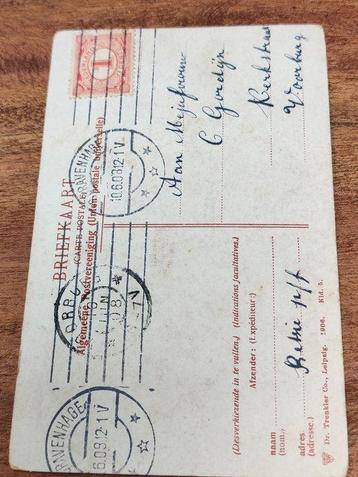 BRIEFKAART
(CARTE POSTALE)
Algemeene Postvereeniging (Union postale universelle)
1
'S GRAVENHAGE
10.6.09 12-1V
'S GRAVENHAGE
6.09 12-1V
Aan Mejufvrouw
C Gordijn
Kerkstraat
Voorburg
(Desverkiezende in te vullen.) (Indications facultatives.)
Afzender: (Expéditeur:)
naam
(nom.)
adres
(adresse.)
Dr. Trenkler Co., Leipzig. 1906. Kld. 5.